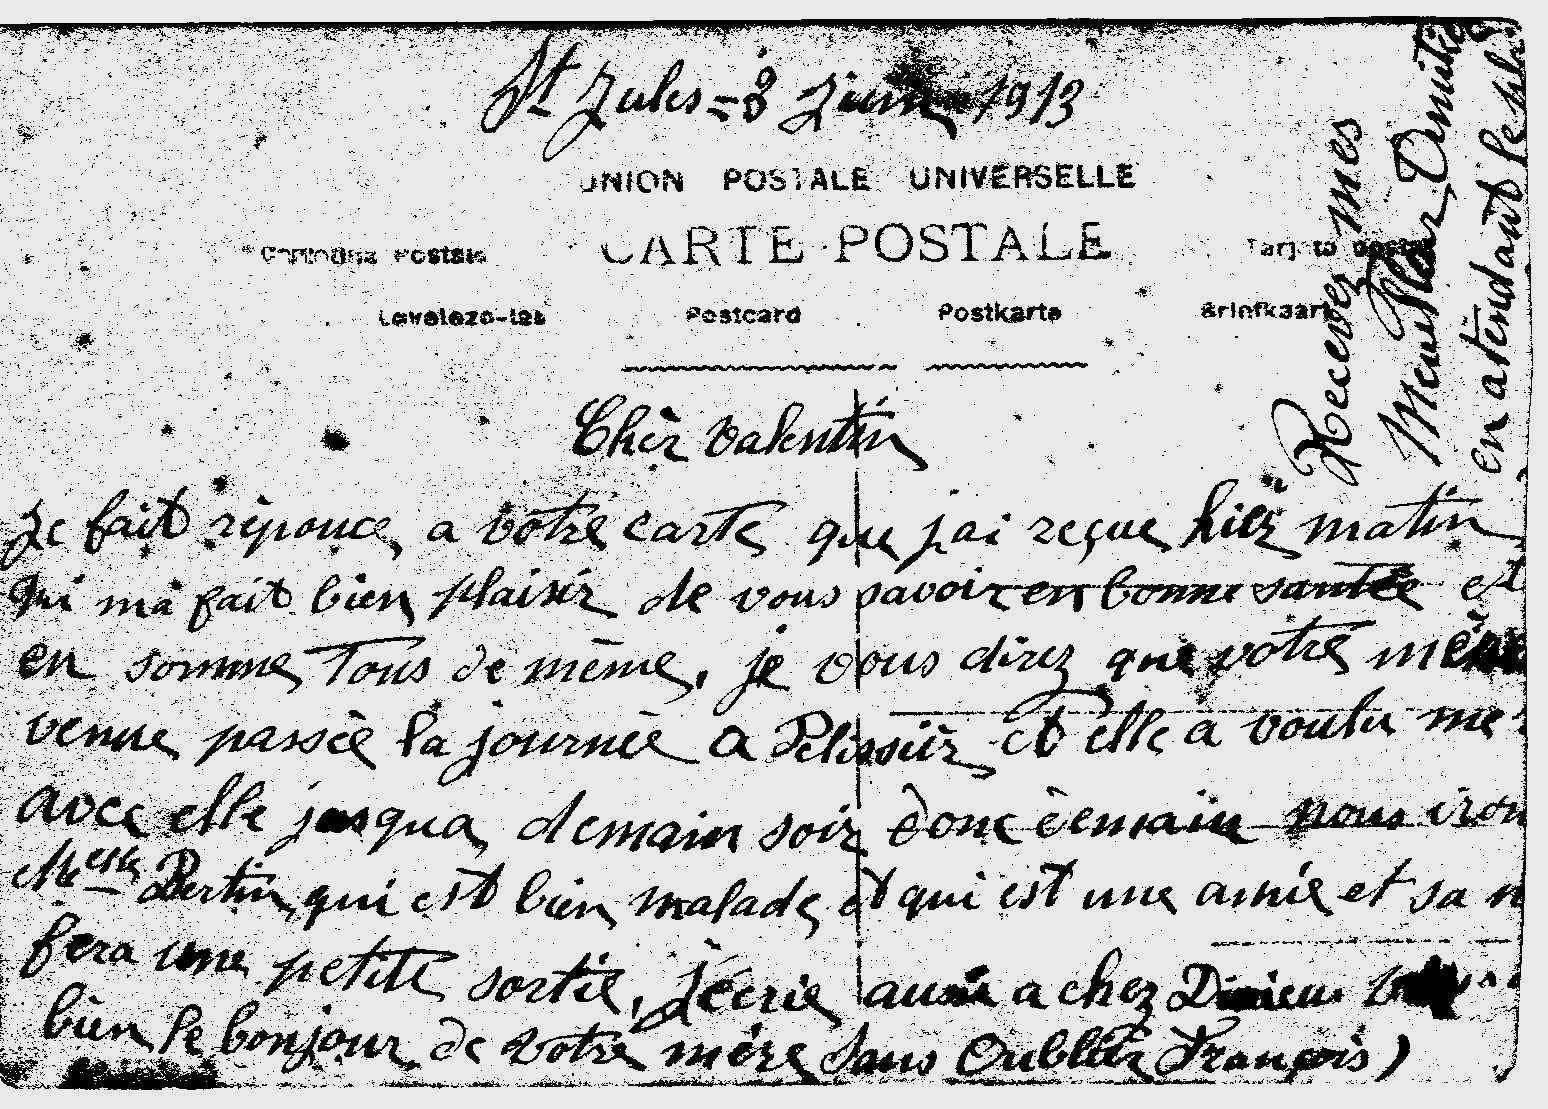 St Jules = 8 Juin 1913
UNION POSTALE UNIVERSELLE
CARTE POSTALE
Postcard Postkarte Briefkaart
Cher Valentin
Je fait réponce a votre carte que j'ai reçue hier matin
qui ma fait bien plaisir de vous savoir en bonne santée et
en somme Tous de même, je vous direz que votre mère
venue passée la journée a Pelissier et elle a voulu me
avec elle jusqua demain soir donc demain nous iron
Pertin qui est bien malade et qui est une amie et sa
fera une petite sortie, J'écrie aussi a chez
bien le bonjour de votre mère sans Oublier François)
Recevez mes
en atendant le